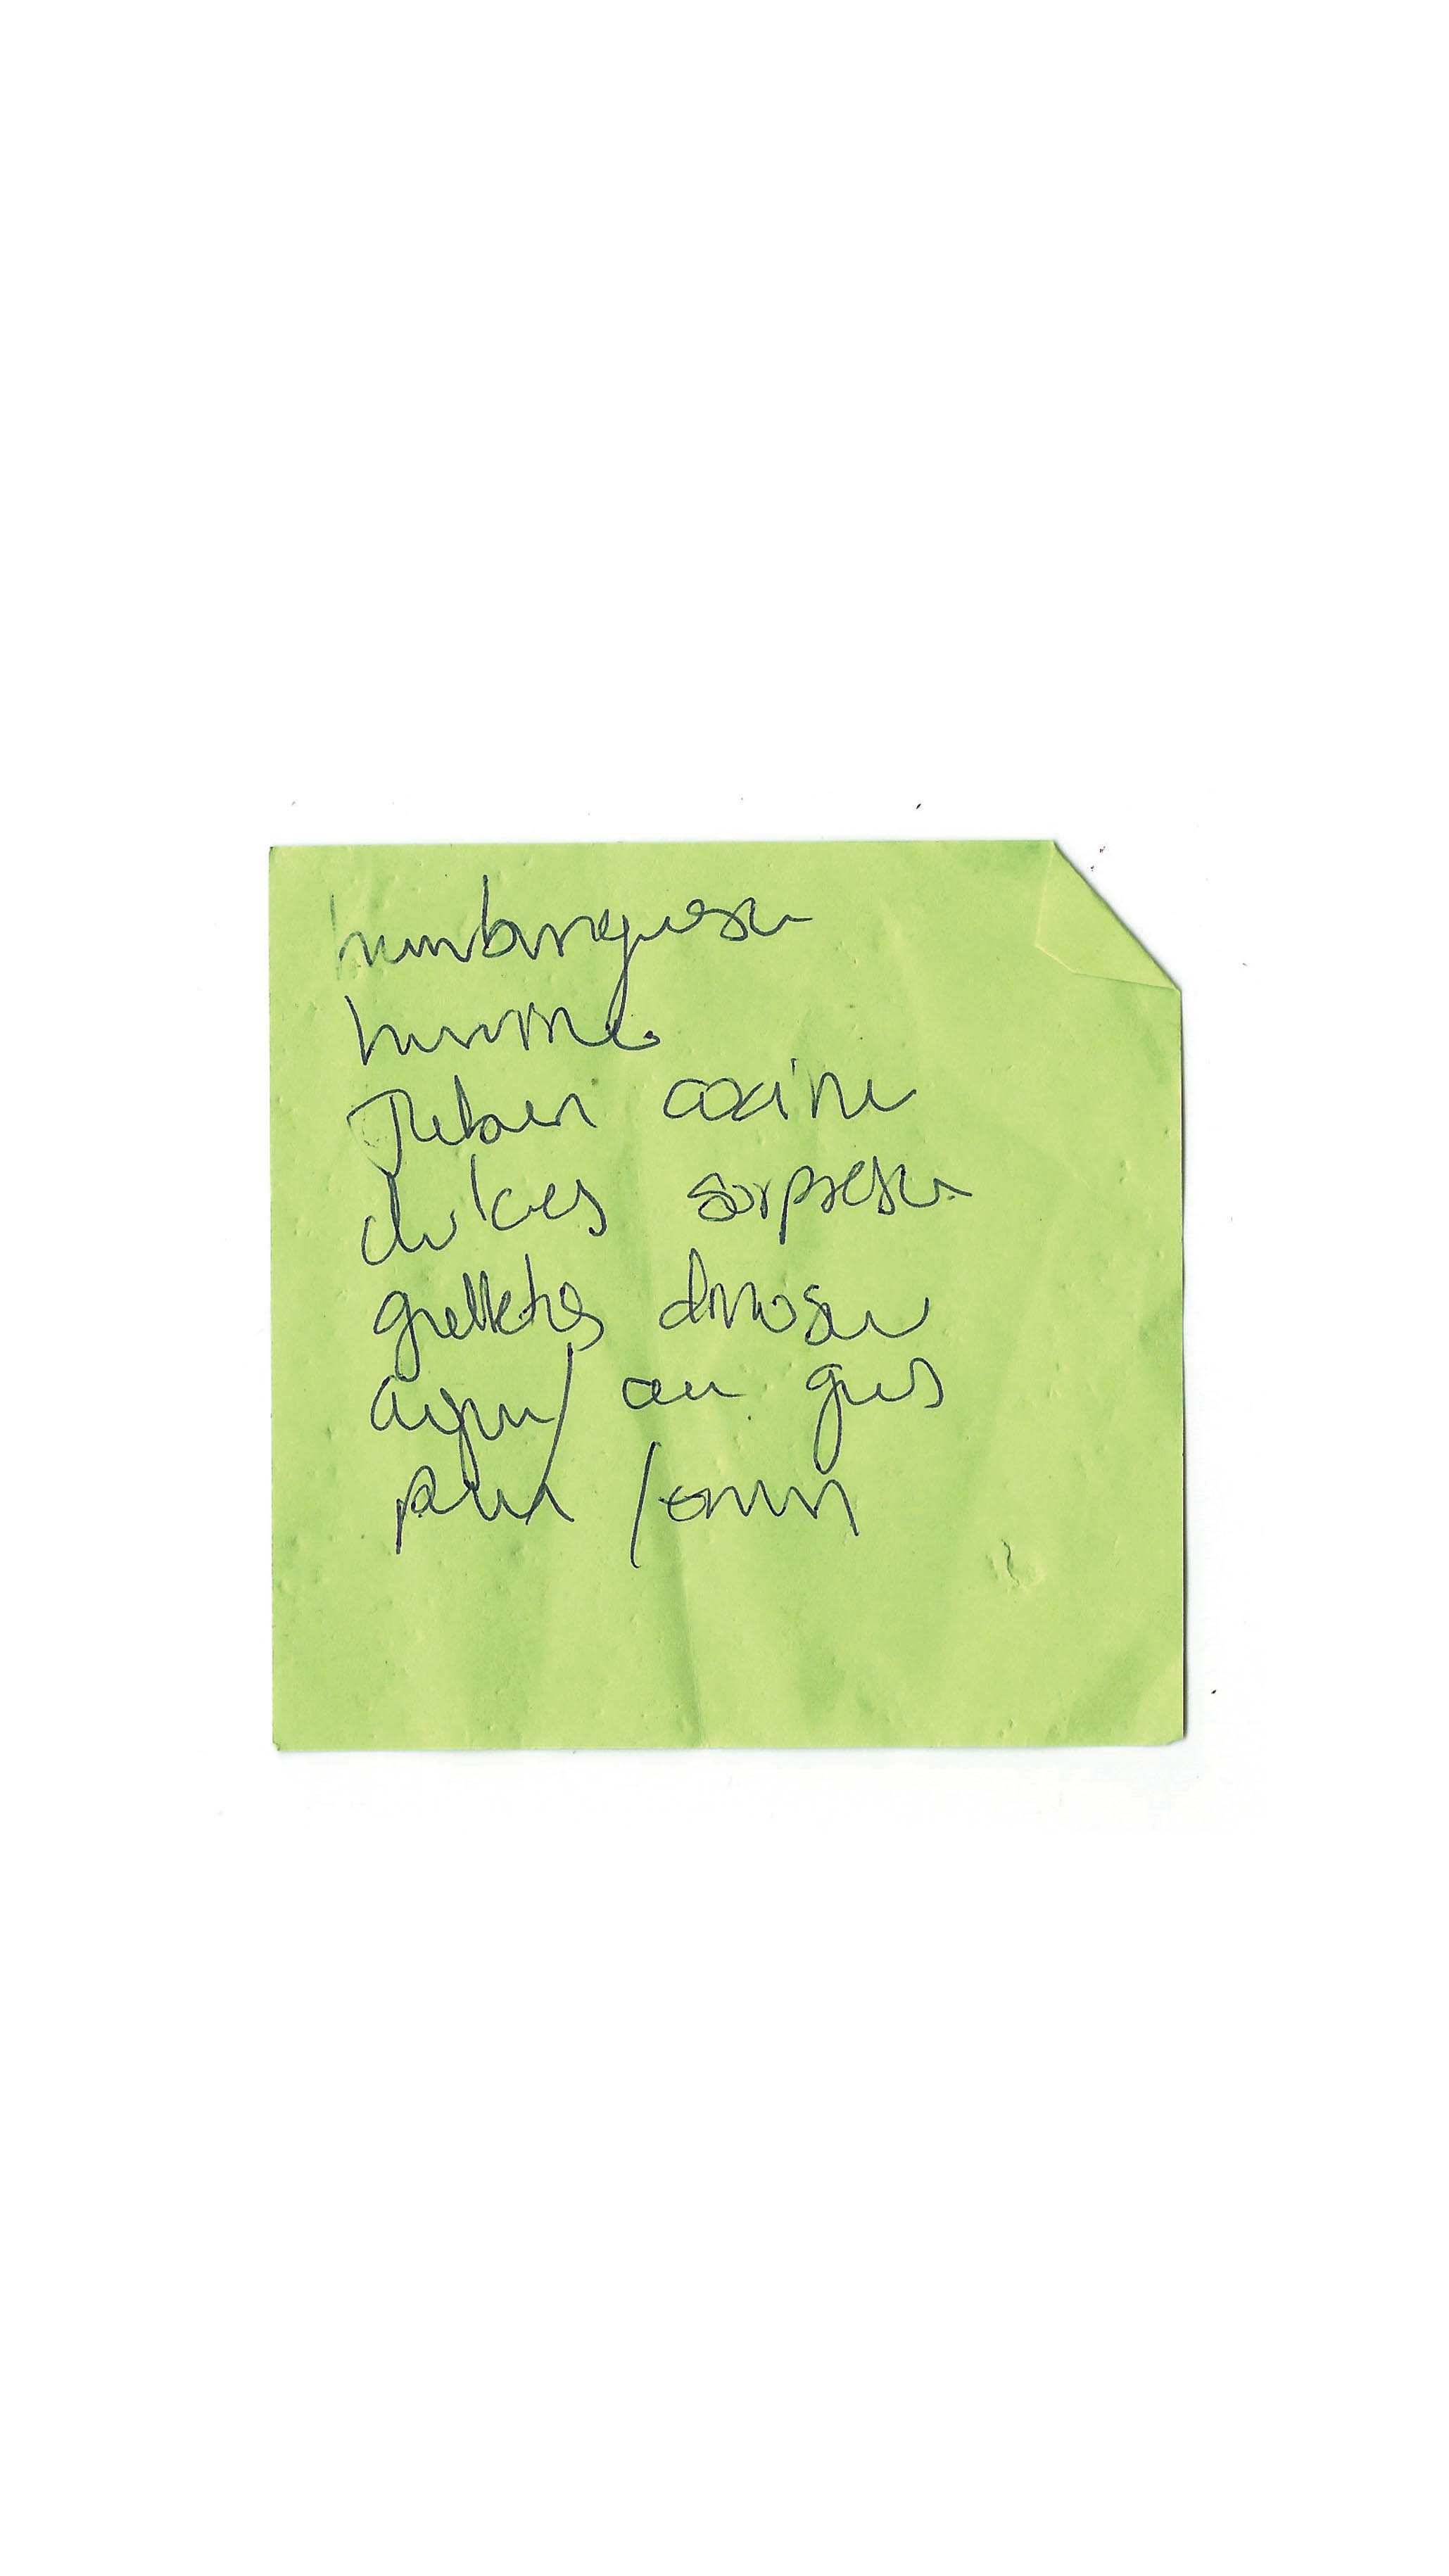 hamburguesa
harina
Jabón cocina
dulces sorpresa
galletas dinosau
agua con gas
para